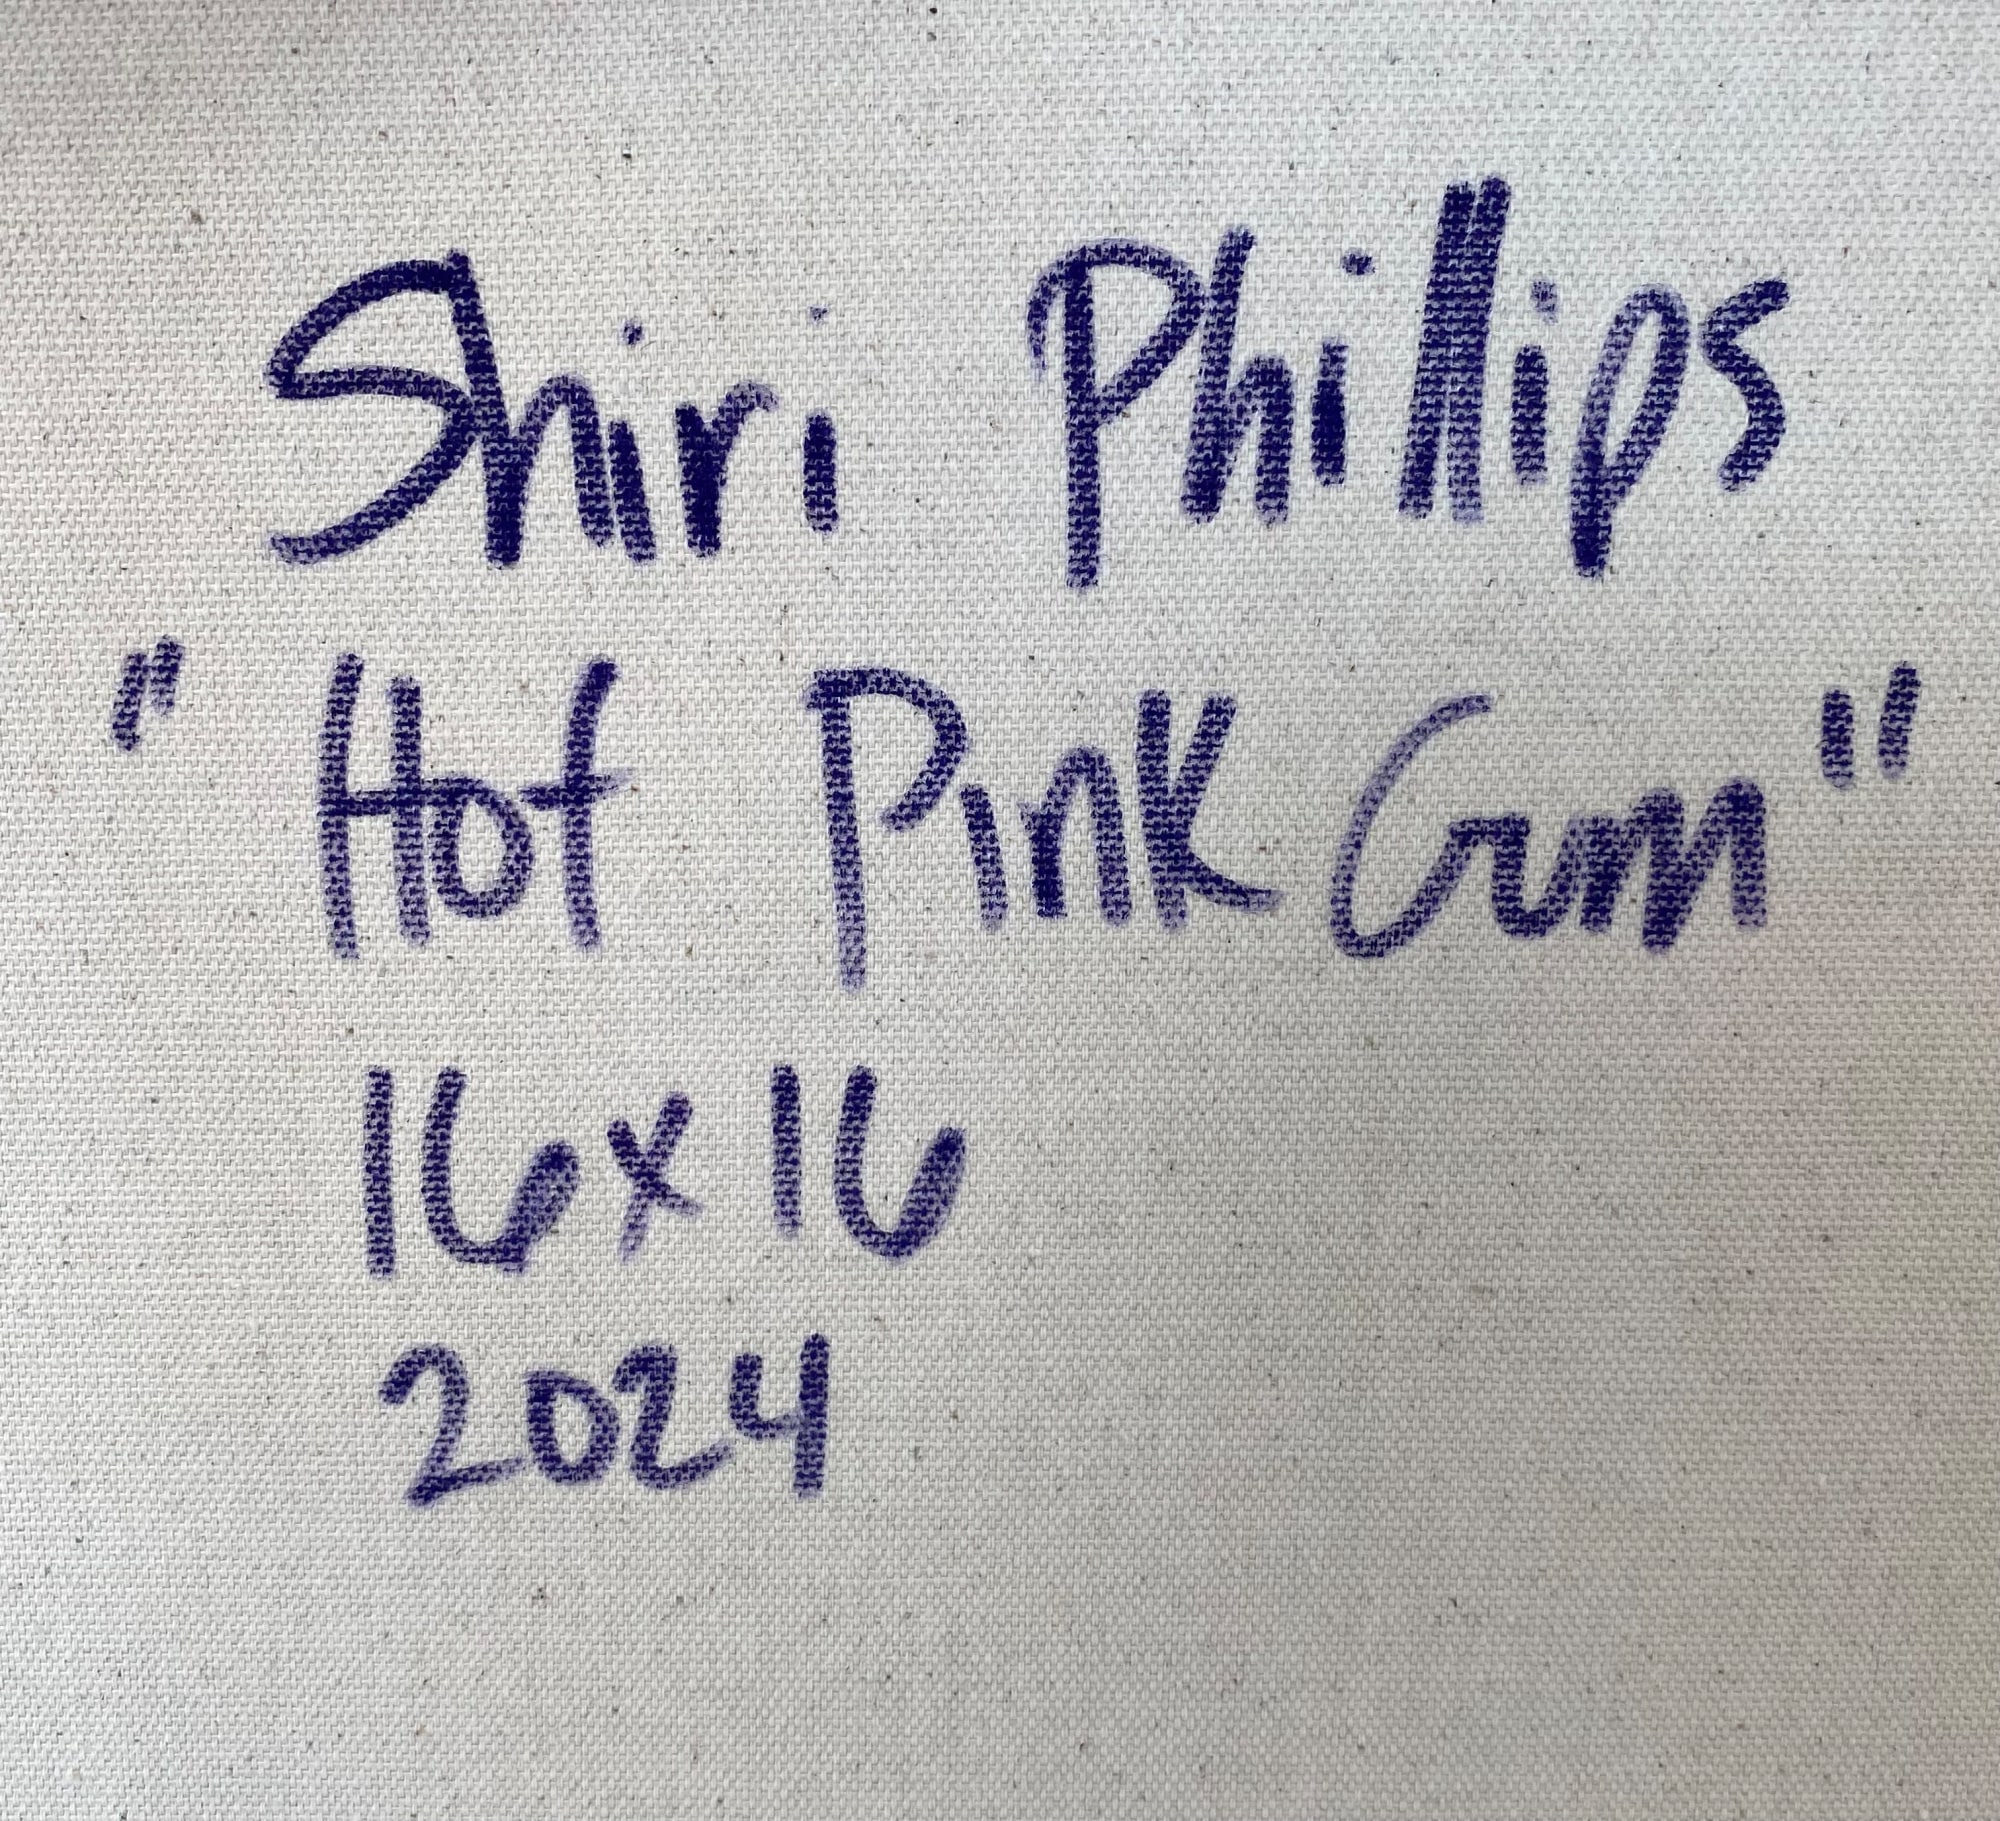 Shiri Phillips
"Hot Pink Gum"
16x16
2024